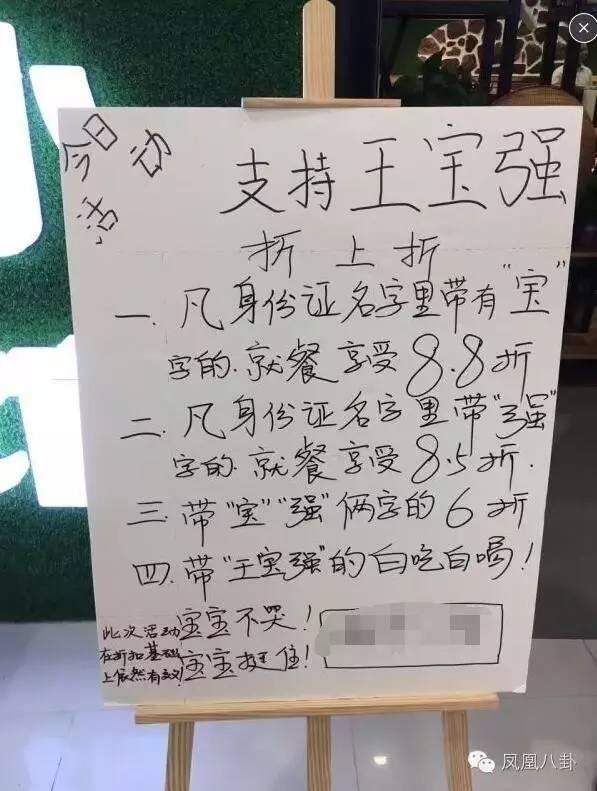 今日
活动
支持王宝强
折上折
一.凡身份证名字里带有"宝"
字的.就餐享受8.8折
二.凡身份证名字里带"强"
字的.就餐享受8.5折.
三.带"宝""强"俩字的6折
四.带"王宝强"的白吃白喝!
宝宝不哭!
宝宝挺住!
此次活动
在折扣基础
上依然有效!
凤凰八卦